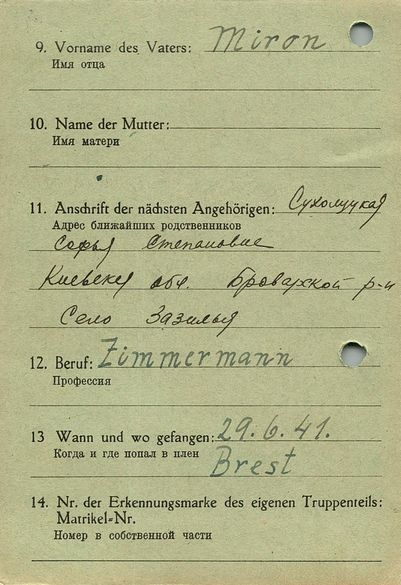 9. Vorname des Vaters: Miron
Имя отца
10. Name der Mutter:
Имя матери
11. Anschrift der nächsten Angehörigen: Сухолуцкая
Адрес ближайших родственников
Софья Степановне
Киевская обл. Броварской р-н
Село Зазимья
12. Beruf: Zimmermann
Профессия
13 Wann und wo gefangen: 29.6.41.
Когда и где попал в плен
Brest
14. Nr. der Erkennungsmarke des eigenen Truppenteils:
Matrikel-Nr.
Номер в собственной части